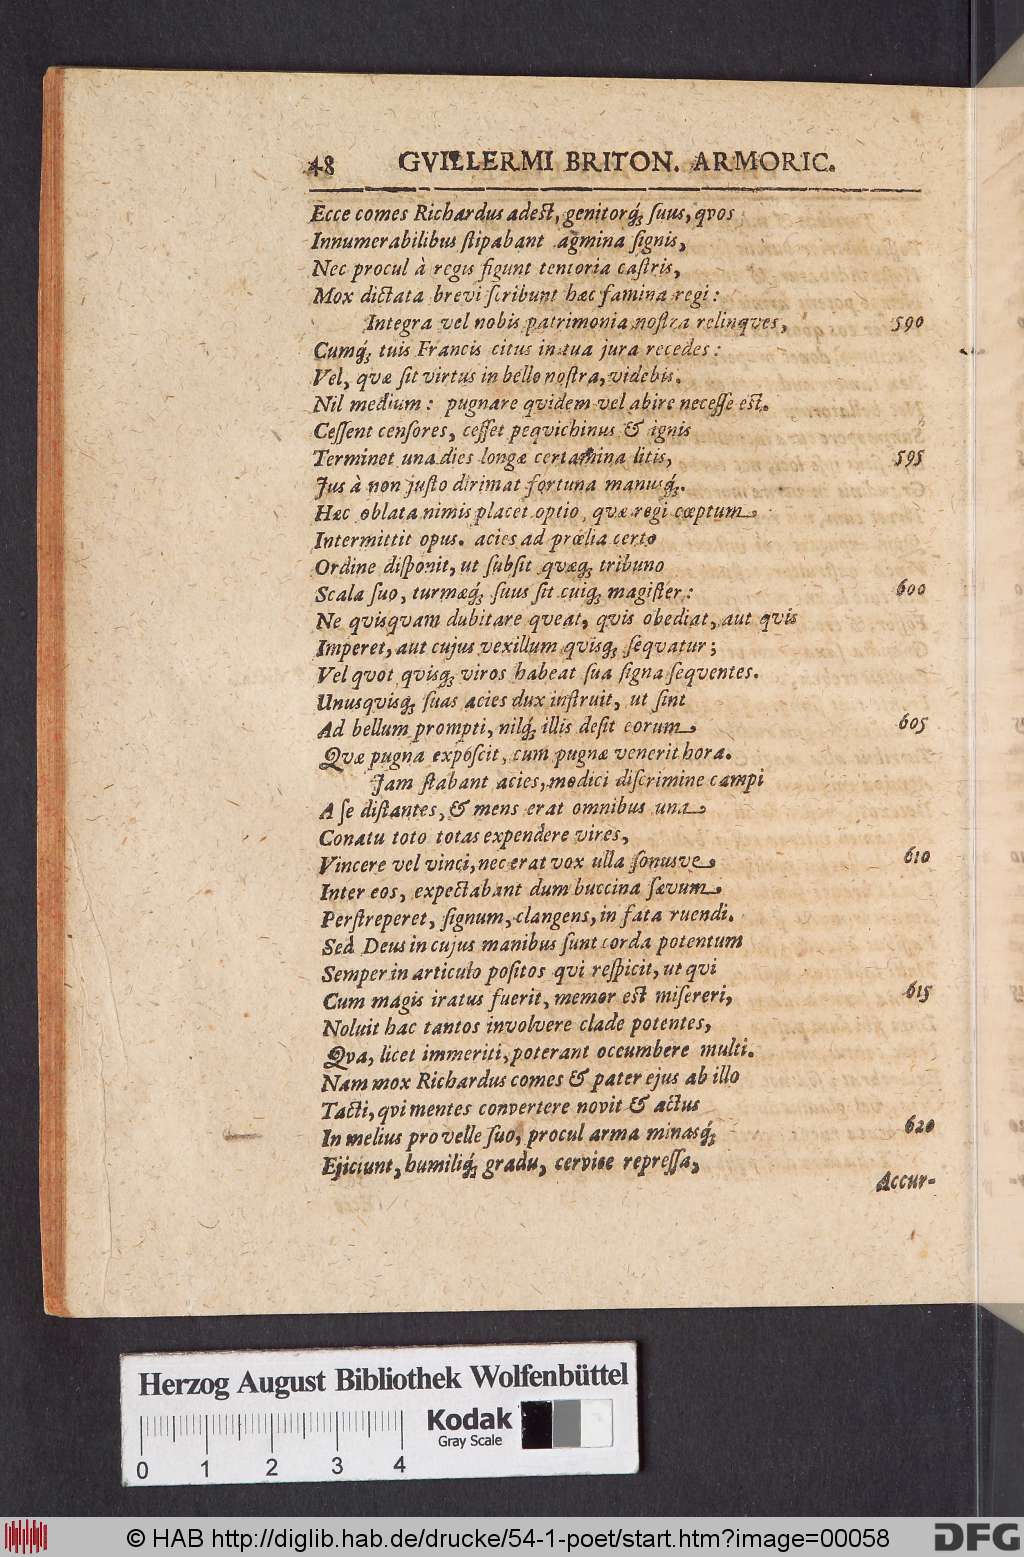 48 GVILLERMI BRITON. ARMORIC.
Ecce comes Richardus adest, genitorq́; suus, qvos
Innumerabilibus stipabant agmina signis,
Nec procul à regis figunt tentoria castris,
Mox dictata brevi scribunt hæc famina regi:
Integra vel nobis patrimonia nostra relinqves, 590
Cumq́; tuis Francis citus in tua jura recedes:
Vel, quæ sit virtus in bello nostra, videbis.
Nil medium: pugnare qvidem vel abire necesse est.
Cessent censores, cesset peqvichinus & ignis
Terminet una dies longæ certamina litis, 595
Jus à non justo dirimat fortuna manusq́;.
Hæc oblata nimis placet optio, quæ regi cœptum
Intermittit opus. acies ad prœlia certo
Ordine disponit, ut subsit qvæq; tribuno
Scala suo, turmæq́; suus sit cuiq; magister: 600
Ne qvisqvam dubitare qveat, qvis obediat, aut qvis
Imperet, aut cujus vexillum qvisq; seqvatur;
Vel qvot qvisq; viros habeat sua signa seqventes.
Unusqvisq; suas acies dux instruit, ut sint
Ad bellum prompti, nilq́; illis desit eorum 605
Qvæ pugna exposcit, cum pugnæ venerit hora.
Jam stabant acies, modici discrimine campi
A se distantes, & mens erat omnibus una
Conatu toto totas expendere vires,
Vincere vel vinci, nec erat vox ulla sonusve 610
Inter eos, expectabant dum buccina sævum
Perstreperet, signum, clangens, in fata ruendi.
Sed Deus in cujus manibus sunt corda potentum
Semper in articulo positos qui respicit, ut qvi
Cum magis iratus fuerit, memor est misereri, 615
Noluit hac tantos involvere clade potentes,
Qva, licet immeriti, poterant occumbere multi.
Nam mox Richardus comes & pater ejus ab illo
Tacti, qvi mentes convertere novit & actus
In melius pro velle suo, procul arma minasq́; 620
Ejiciunt, humiliq́; gradu, cervice repressa,
Accur-
Herzog August Bibliothek Wolfenbüttel
Kodak
Gray Scale
0 1 2 3 4
© HAB http://diglib.hab.de/drucke/54-1-poet/start.htm?image=00058
DFG